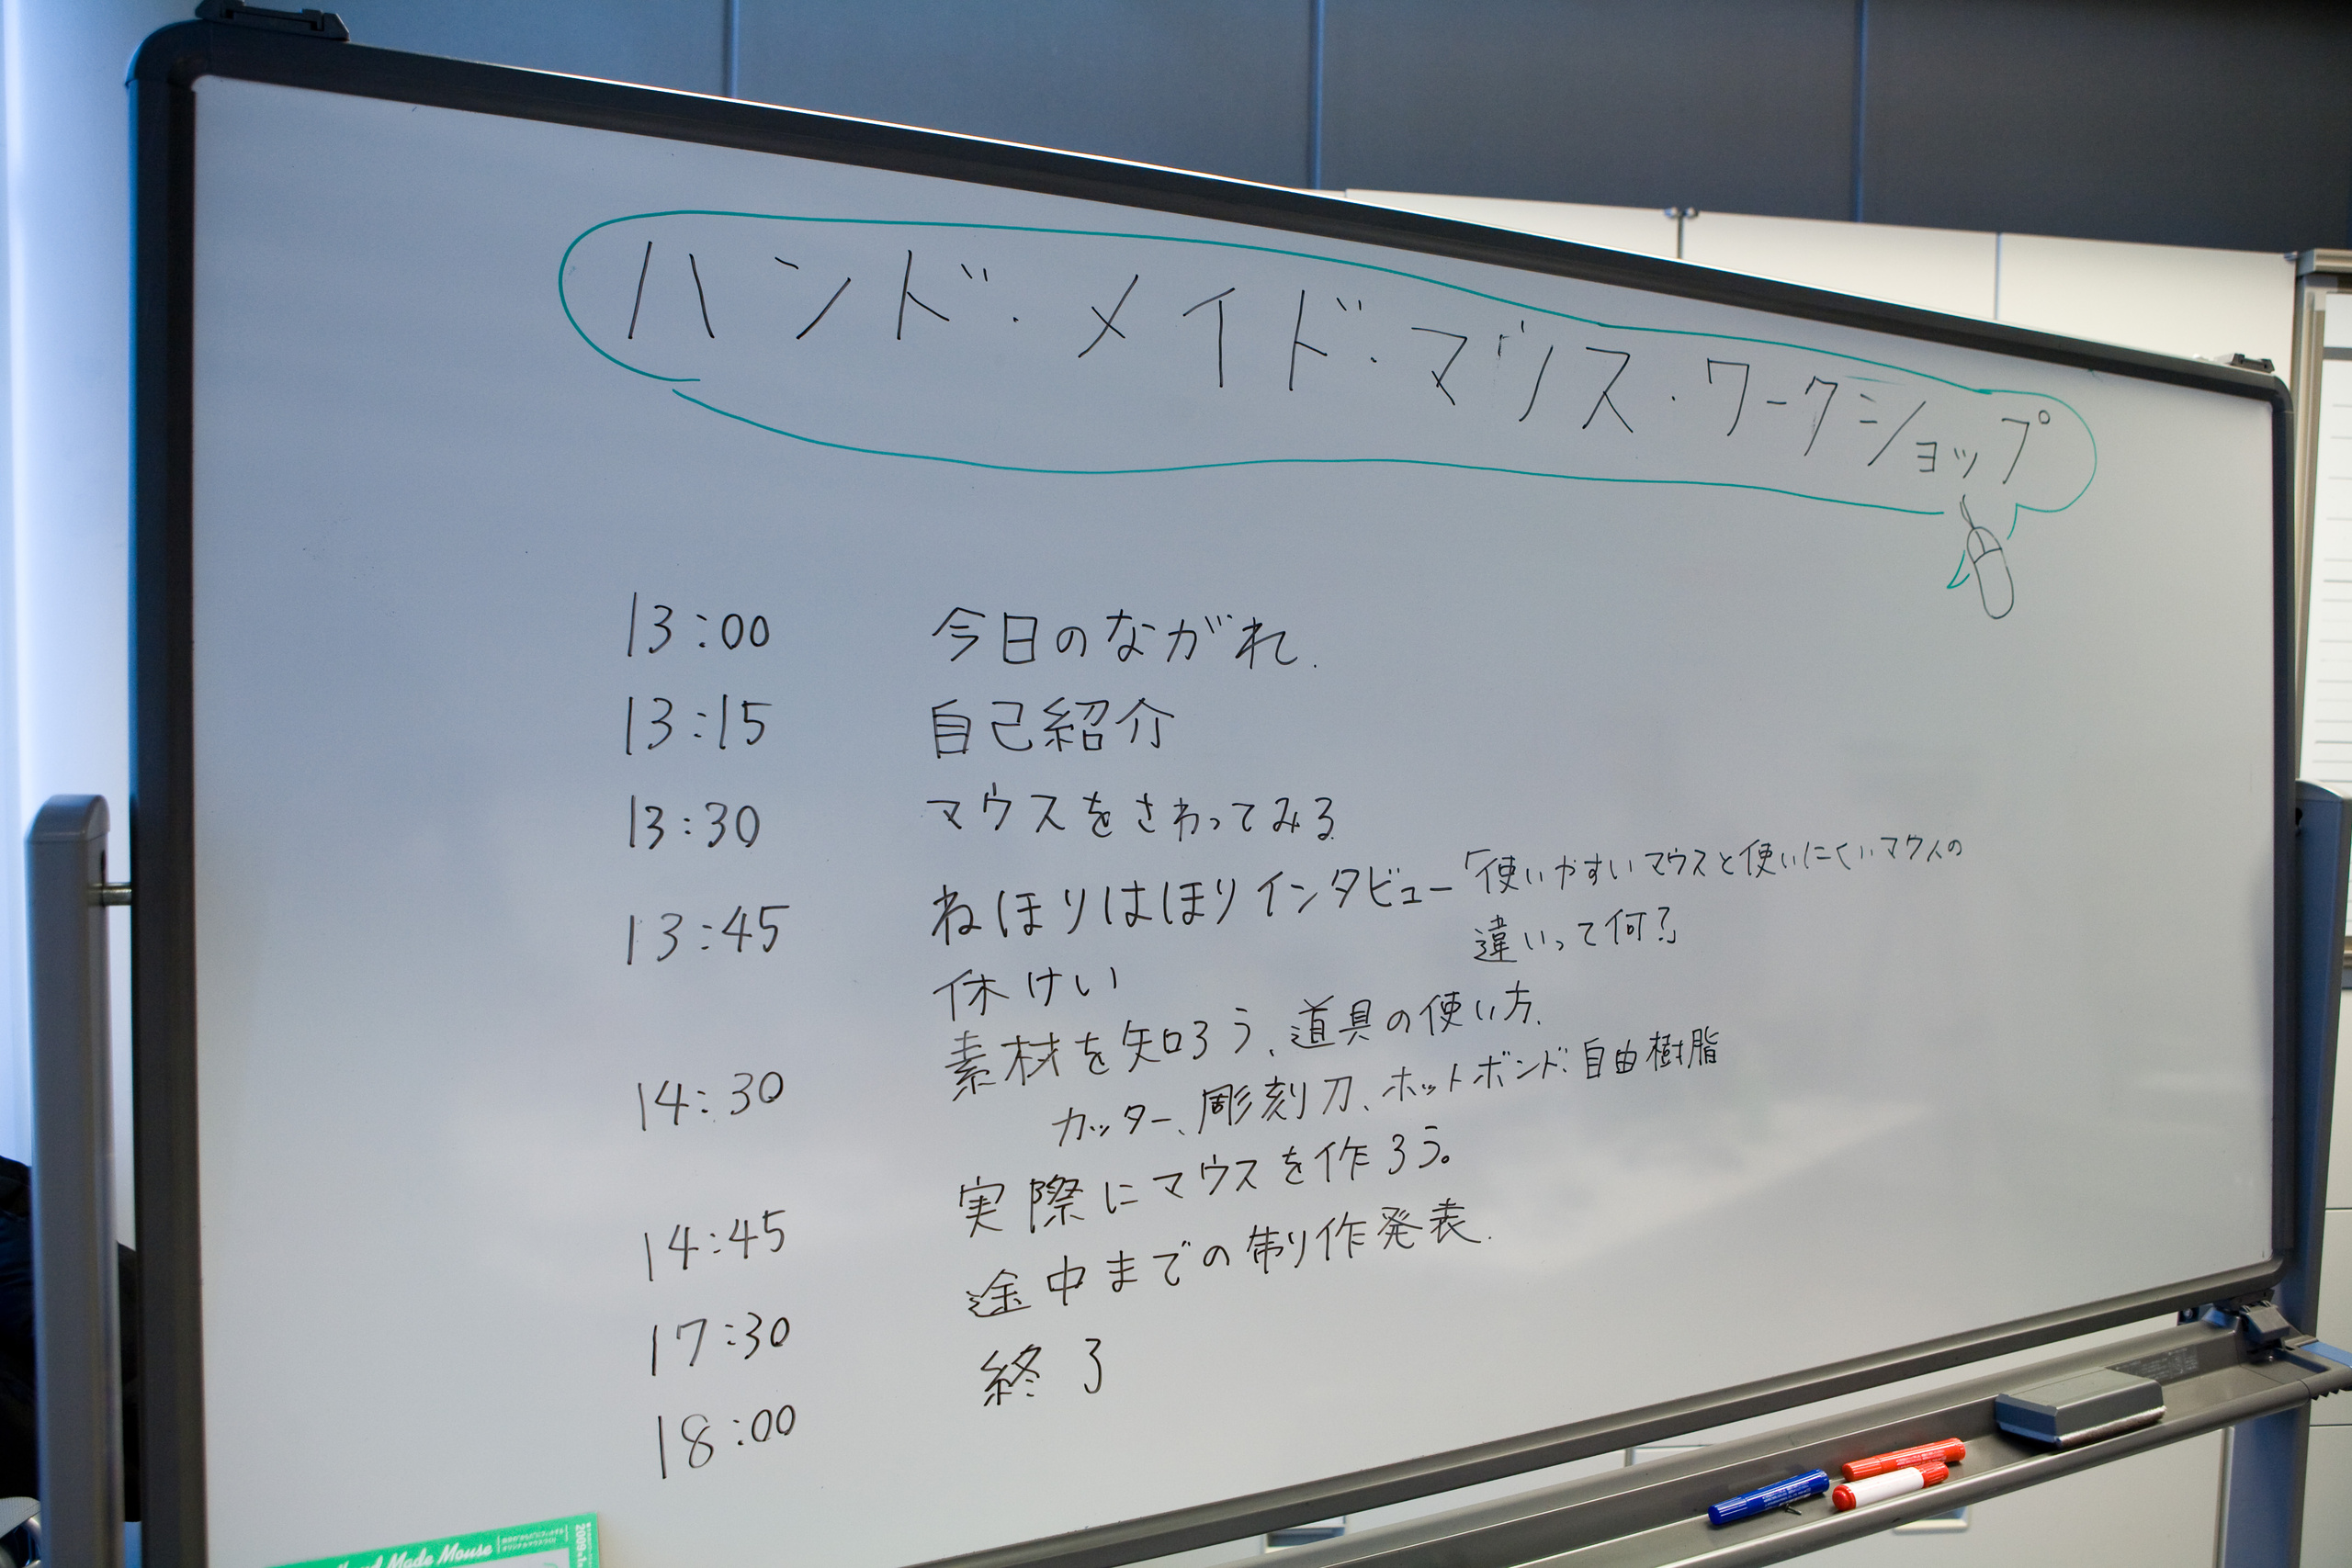 ハンド・メイド・マウス・ワークショップ
13:00 今日のながれ.
13:15 自己紹介
13:30 マウスをさわってみる.
13:45 ねほりはほりインタビュー「使いやすいマウスと使いにくいマウスの
違いって何?」
休けい
14:30 素材を知ろう、道具の使い方.
カッター、彫刻刀、ホットボンド:自由樹脂
14:45 実際にマウスを作ろう。
17:30 途中までの制作発表.
18:00 終了
Hand Made Mouse
2009